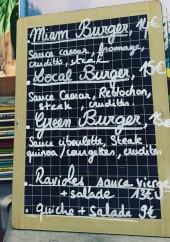 Miam Burger, 14€
Sauce caesar, fromage,
crudités, steak
Local Burger, 15€
Sauce Caesar, Reblochon,
steak, crudités
Green Burger,
Sauce ciboulette, Steak
quinoa/courgettes, crudités
Ravioles sauce vierge
+ salade 13€
Quiche + Salade 9€